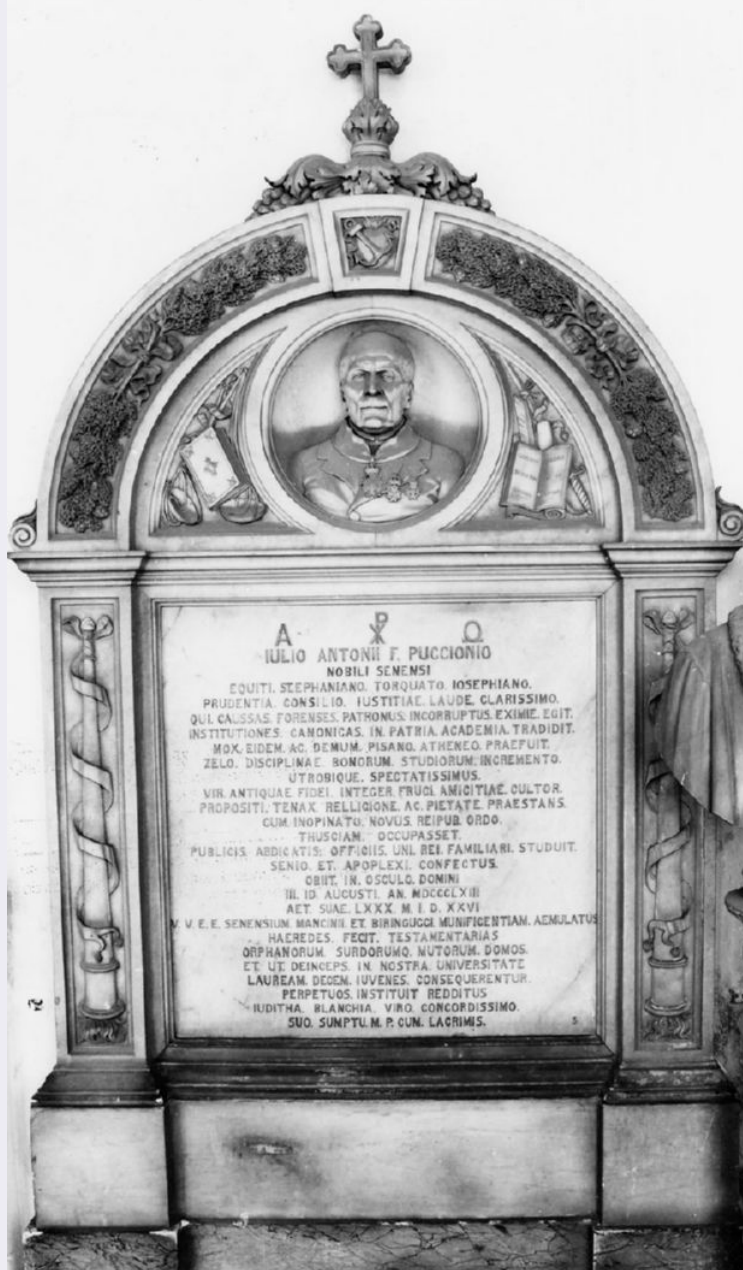 Α ☧ Ω
IULIO ANTONII F. PUCCIONIO
NOBILI SENENSI
EQUITI. STEPHANIANO. TORQUATO. IOSEPHIANO.
PRUDENTIA. CONSILIO. IUSTITIAE. LAUDE. CLARISSIMO.
QUI. CAUSSAS. FORENSES. PATRONUS. INCORRUPTUS. EXIMIE. EGIT.
INSTITUTIONES. CANONICAS. IN. PATRIA. ACADEMIA. TRADIDIT.
MOX. EIDEM. AC. DEMUM. PISANO. ATHENEO. PRAEFUIT.
ZELO. DISCIPLINAE. BONORUM. STUDIORUM. INCREMENTO.
UTROBIQUE. SPECTATISSIMUS.
VIR. ANTIQUAE. FIDEI. INTEGER. FRUGI. AMICITIAE. CULTOR.
PROPOSITI. TENAX. RELLIGIONE. AC. PIETATE. PRAESTANS.
CUM. INOPINATO. NOVUS. REIPUB. ORDO.
THUSCIAM. OCCUPASSET.
PUBLICIS. ABDICATIS. OFFICIIS. UNI. REI. FAMILIARI. STUDUIT.
SENIO. ET. APOPLEXI. CONFECTUS.
OBIIT. IN. OSCULO. DOMINI
III. ID. AUGUSTI. AN. MDCCCLXIII
AET. SUAE. LXXX. M. I. D. XXVI
V. V. E. E. SENENSIUM. MANCINII. ET. BIRINGUCCI. MUNIFICENTIAM. AEMULATUS
HAEREDES. FECIT. TESTAMENTARIAS
ORPHANORUM. SURDORUMQ. MUTORUM. DOMOS.
ET. UT. DEINCEPS. IN. NOSTRA. UNIVERSITATE
LAUREAM. DECEM. IUVENES. CONSEQUERENTUR.
PERPETUOS. INSTITUIT. REDDITUS
IUDITHA. BLANCHIA. VIRO. CONCORDISSIMO.
SUO. SUMPTU. M. P. CUM. LACRIMIS.